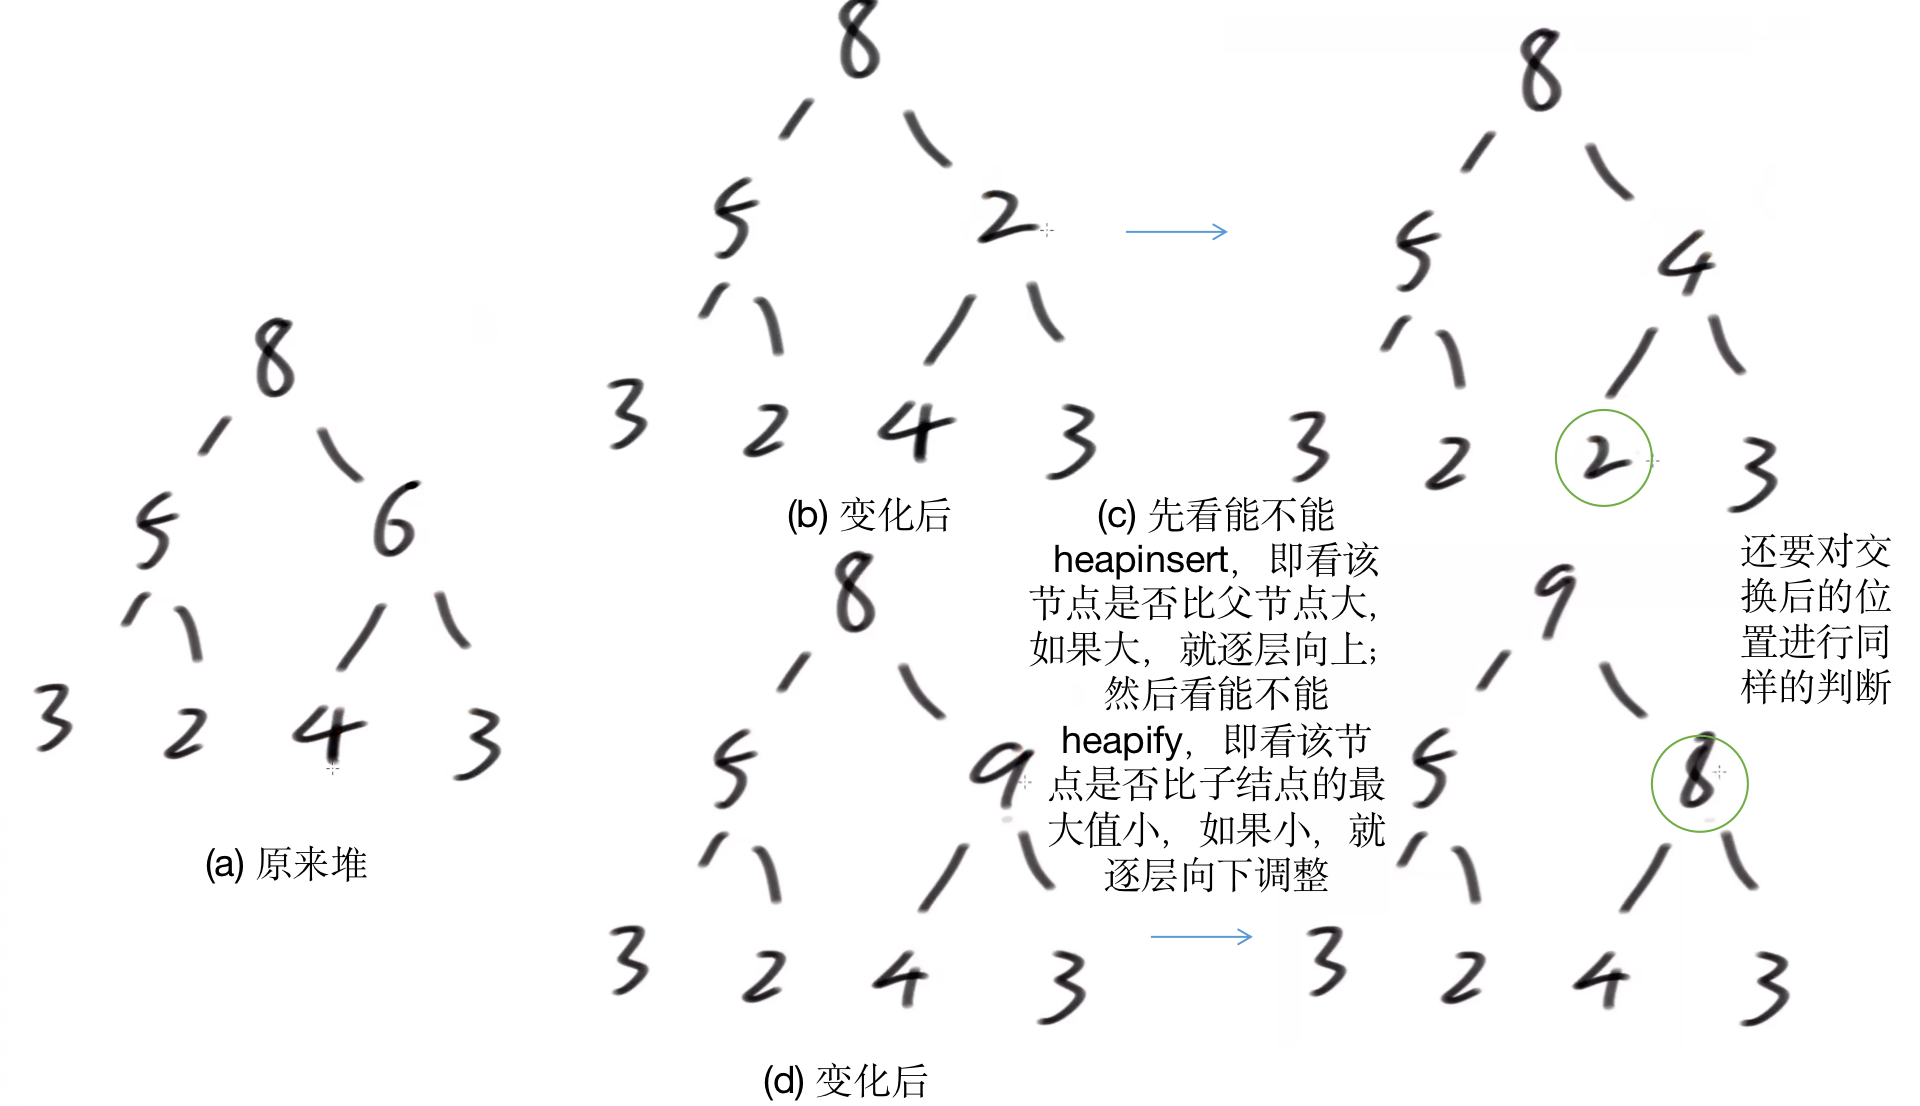 8
5 6
3 2 4 3
(a) 原来堆
8
5 2
3 2 4 3
(b) 变化后
8
5 4
3 2 2 3
(c) 先看能不能
heapinsert，即看该
节点是否比父节点大，
如果大，就逐层向上；
然后看能不能
heapify，即看该节
点是否比子结点的最
大值小，如果小，就
逐层向下调整
还要对交
换后的位
置进行同
样的判断
8
5 9
3 2 4 3
(d) 变化后
9
5 8
3 2 4 3